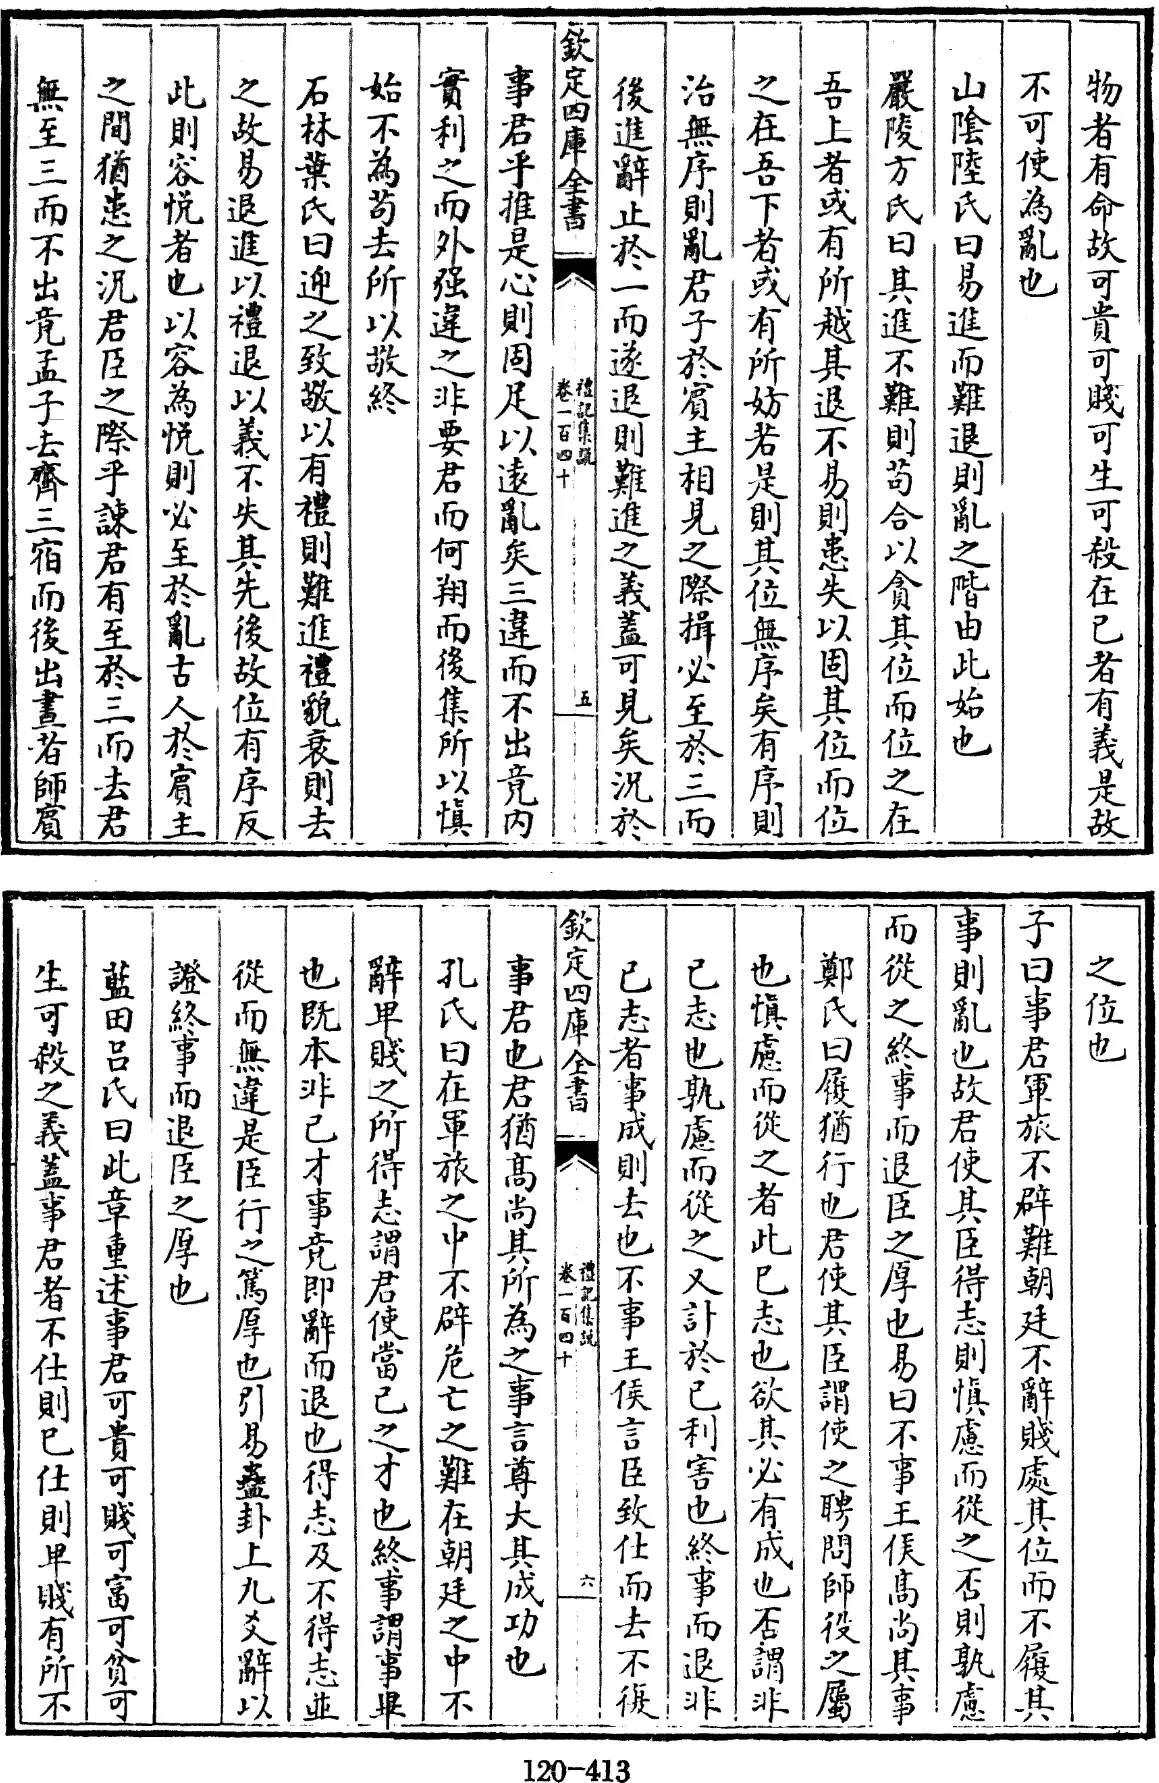 物者有命故可貴可賤可生可殺在己者有義是故
不可使為亂也
山陰陸氏曰易進而難退則亂之階由此始也
嚴陵方氏曰其進不難則苟合以貪其位而位之在
吾上者或有所越其退不易則患失以固其位而位
之在吾下者或有所妨若是則其位無序矣有序則
治無序則亂君子於賓主相見之際揖必至於三而
後進辭止於一而遂退則難進之義蓋可見矣況於
欽定四庫全書
禮記集說
卷一百四十
五
事君乎推是心則固足以遠亂矣三違而不出竟内
實利之而外强違之非要君而何翔而後集所以慎
始不為苟去所以敬終
石林葉氏曰迎之致敬以有禮則難進禮貌衰則去
之故易退進以禮退以義不失其先後故位有序反
此則容悅者也以容為悅則必至於亂古人於賓主
之間猶患之況君臣之際乎諫君有至於三而去君
無至三而不出竟孟子去齊三宿而後出晝若師賓
之位也
子曰事君軍旅不辟難朝廷不辭賤處其位而不履其
事則亂也故君使其臣得志則慎慮而從之否則孰慮
而從之終事而退臣之厚也易曰不事王侯高尚其事
鄭氏曰履猶行也君使其臣謂使之聘問師役之屬
也慎慮而從之者此己志也欲其必有成也否謂非
己志也孰慮而從之又計於己利害也終事而退非
己志者事成則去也不事王侯言臣致仕而去不復
欽定四庫全書
禮記集說
卷一百四十
六
事君也君猶高尚其所為之事言尊大其成功也
孔氏曰在軍旅之中不辟危亡之難在朝廷之中不
辭卑賤之所得志謂君使當己之才也終事謂事畢
也既本非己才事竟即辭而退也得志及不得志並
從而無違是臣行之篤厚也引易蠱卦上九爻辭以
證終事而退臣之厚也
藍田呂氏曰此章重述事君可貴可賤可富可貧可
生可殺之義蓋事君者不仕則已仕則卑賤有所不
120-413